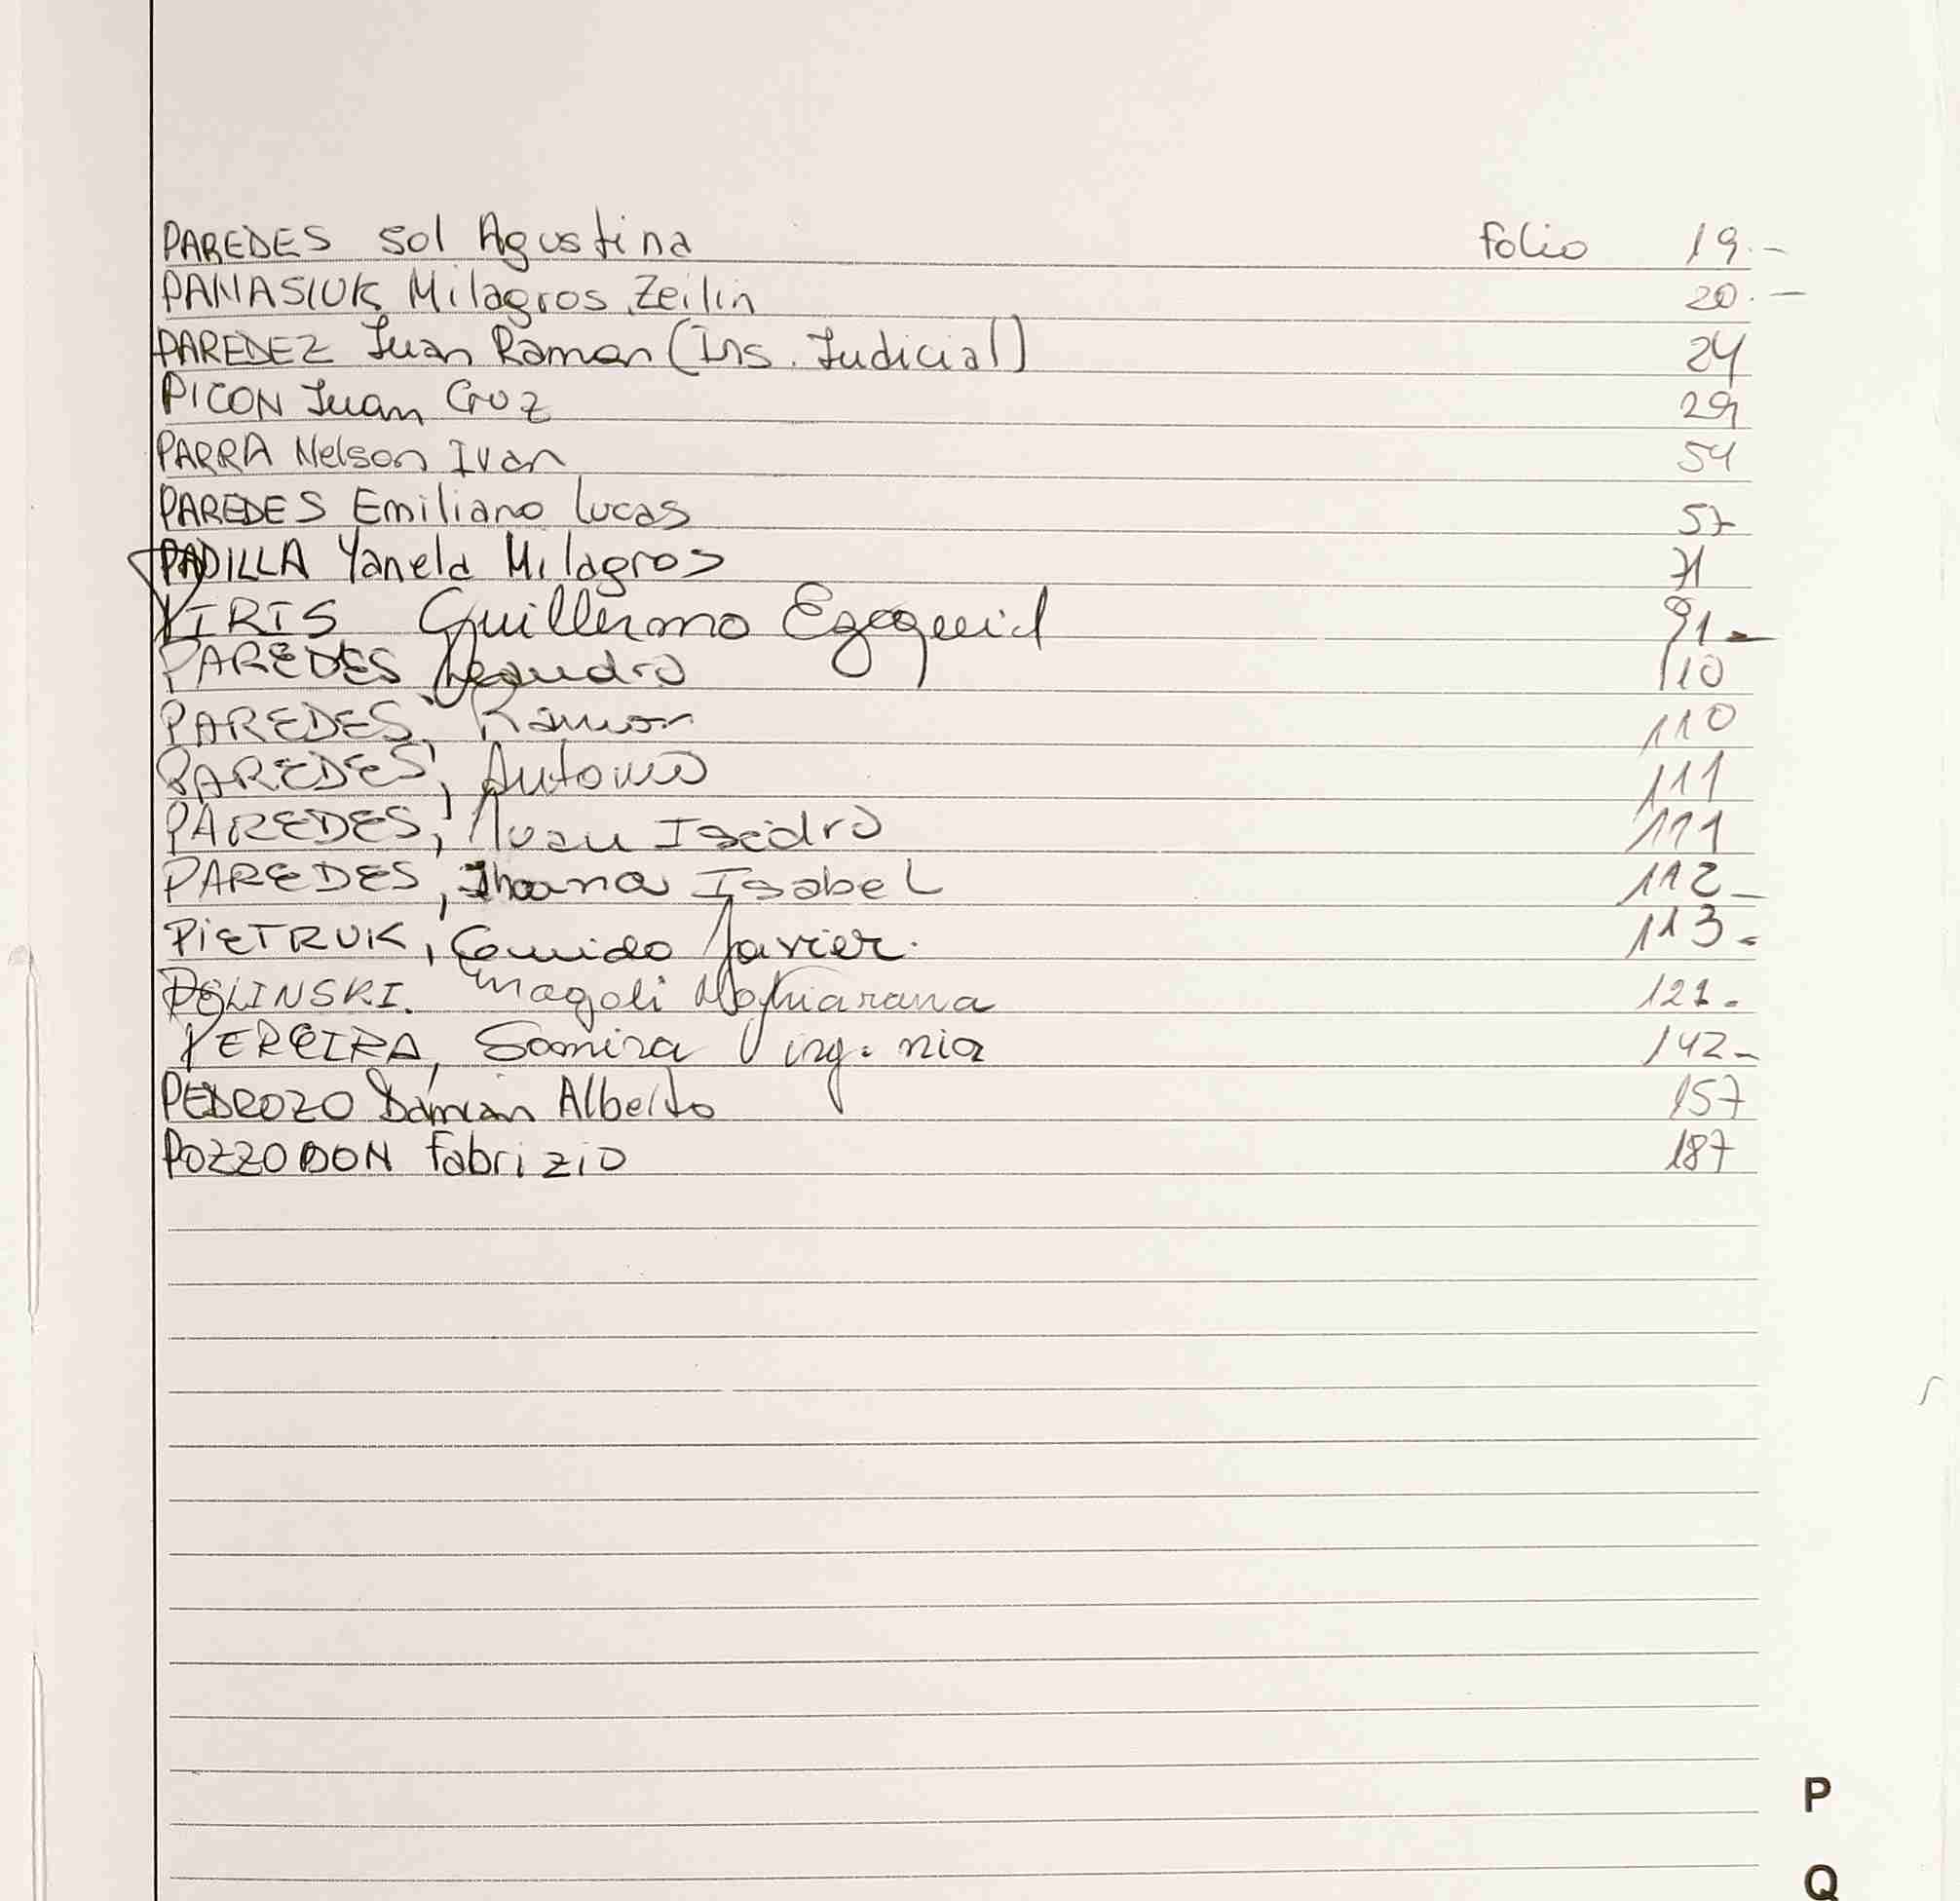 PAREDES Sol Agustina folio 19.-
PANASIUK Milagros Zeilin 20.-
PAREDEZ Juan Ramon (Ins. Judicial) 24
PICON Juan Cruz 29
PARRA Nelson Ivan 54
PAREDES Emiliano Lucas 57
PADILLA Yanela Milagros 71
PIRIS Guillermo Ezequiel 91-
PAREDES Leandro 110
PAREDES, Ramon 110
PAREDES, Antonio 111
PAREDES, Juan Isidro 111
PAREDES, Jhoana Isabel 112-
PIETRUK, Javier. 113-
POLINSKI. Magali 121-
PEREIRA, Samira Virginia 142-
PEDROZO Damian Alberto 157
POZZOBON Fabrizio 187
P
Q